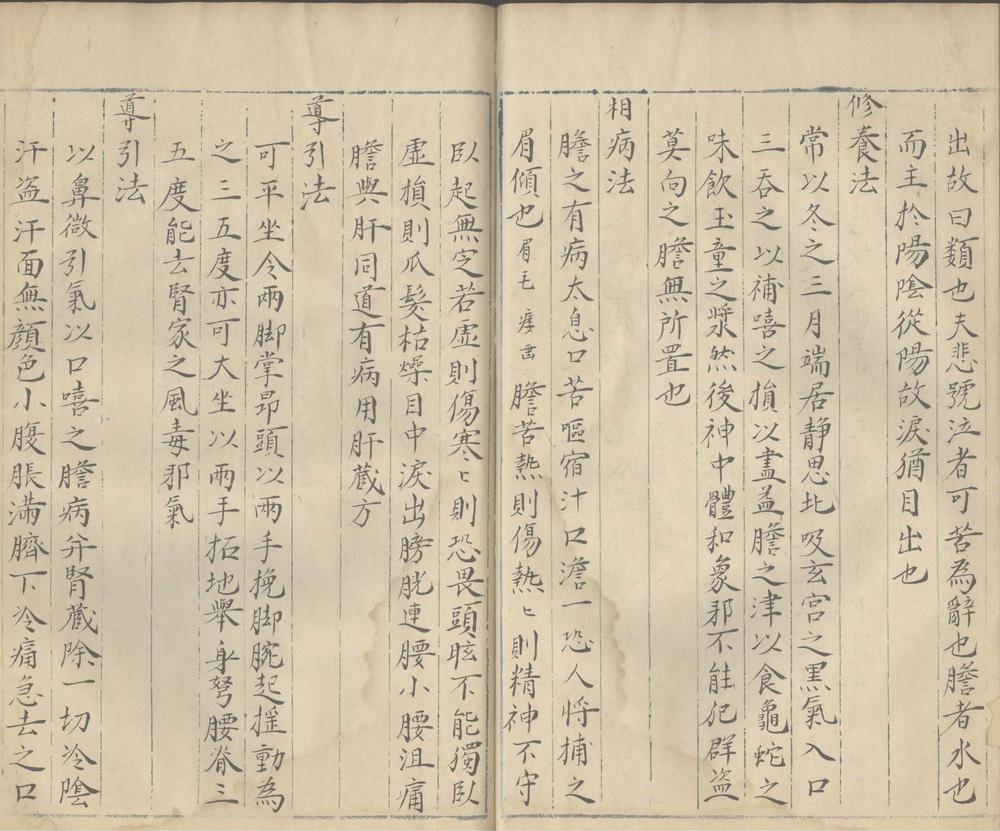 出故曰類也夫悲號泣者可苦為辭也膽者水也
而主於陽陰從陽故淚猶目出也
修養法
常以冬之三月端居静思北吸玄宮之黒氣入口
三吞之以補嘻之損以盡益膽之津以食龜蛇之
味飲玉童之漿然後神中體和象邪不能犯群盗
莫向之膽無所置也
相病法
膽之有病太息口苦嘔宿汁口澹一恐人将捕之
眉傾也眉毛 膽苦熱則傷熱〻則精神不守
卧起無定若虚則傷寒〻則恐畏頭眩不能獨卧
虚損則爪髮枯燥目中淚出膀胱連腰小腰沮痛
膽與肝同道有病用肝藏方
導引法
可平坐令兩脚掌昂頭以兩手挽脚腕起摇動為
之三五度亦可大坐以兩手拓地舉身弩腰脊三
五度能去腎家之風毒邪氣
導引法
以鼻微引氣以口嘻之膽病并腎藏除一切冷陰
汗盗汗面無顔色小腹脹滿臍下冷痛急去之口